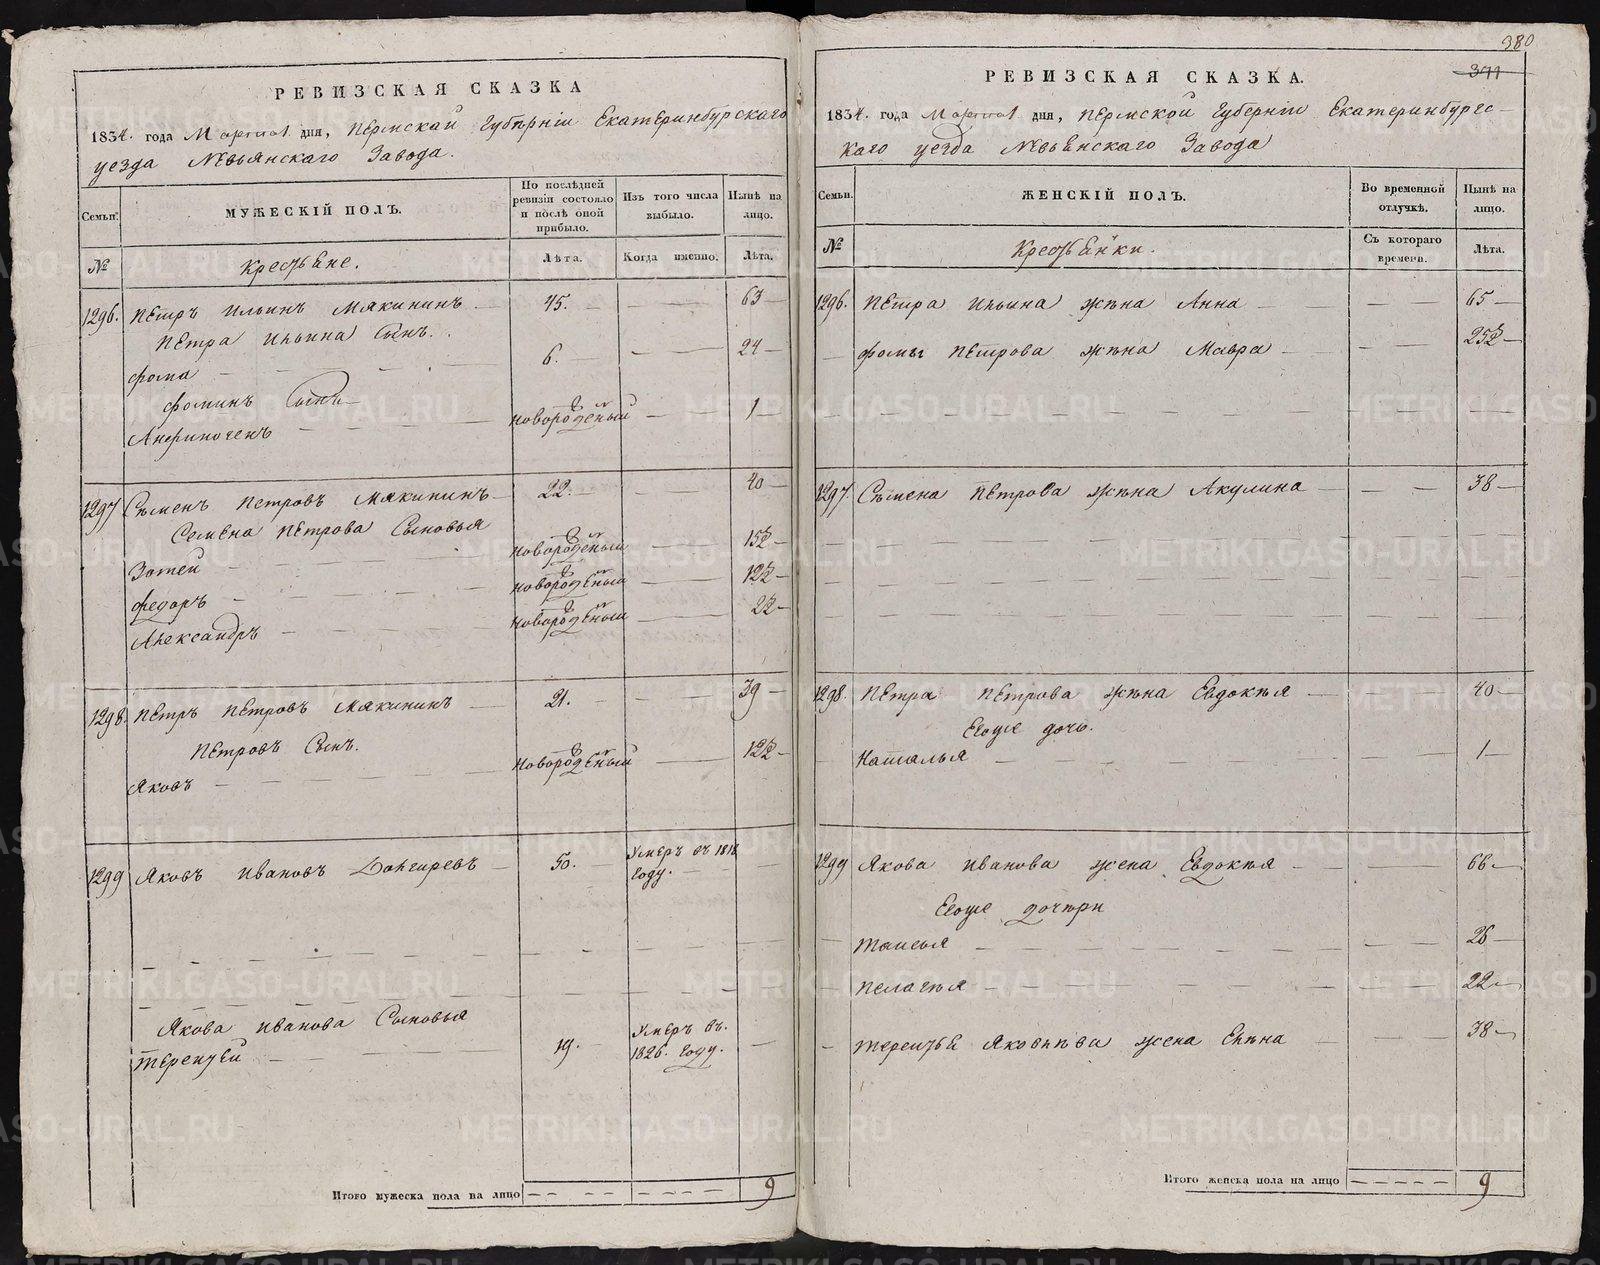 РЕВИЗСКАЯ СКАЗКА
1834. года Марта дня, Пермской Губерніи Екатеринбурскаго
уезда Невьянскаго Завода.
Семьи.
МУЖЕСКІЙ ПОЛЪ.
По послѣдней ревизіи состояло и послѣ оной прибыло.
Изъ того числа выбыло.
Нынѣ на лицо.
№
Крестьяне.
Лѣта.
Когда именно.
Лѣта.
1296. Петръ Ильинъ Мякининъ 45. 63
Петра Ильина Сынъ.
Фома 6. 24
Фоминъ Сынъ
Анфиногенъ новорожденый 1
1297 Семенъ Петровъ Мякининъ 22. 40
Семена Петрова Сыновья
Зотей новорожденый 15½
Федоръ новорожденый 12½
Александръ новорожденый 2½
1298. Петръ Петровъ Мякининъ 21. 39
Петровъ Сынъ.
Яковъ новорожденый 12½
1299 Яковъ Ивановъ 50. Умеръ въ 1818
году.
Якова Иванова Сыновья
Терентей 19. Умеръ въ.
1826. году.
Итого мужеска пола на лицо 9
380
371
РЕВИЗСКАЯ СКАЗКА.
1834. года Марта дня, Пермской Губерніи Екатеринбургс-
каго уезда Невьенскаго Завода
Семьи.
ЖЕНСКІЙ ПОЛЪ.
Во временной отлучкѣ.
Нынѣ на лицо.
№
Крестьенки.
Съ котораго времени.
Лѣта.
1296. Петра Ильина жѣна Анна 65
Фомы Петрова жѣна Мавра 25½
1297. Сѣмена Петрова жѣна Акулина 38
1298. Петра Петрова жѣна Евдокѣя 40
Егоже дочь.
Наталья 1
1299 Якова Иванова жена Евдокѣя 66
Егоже дочѣри
Таисья 26
Пелагѣя 22
Терентья Яковлѣва жена Елѣна 38
Итого женска пола на лицо 9
METRIKI.GASO-URAL.RU